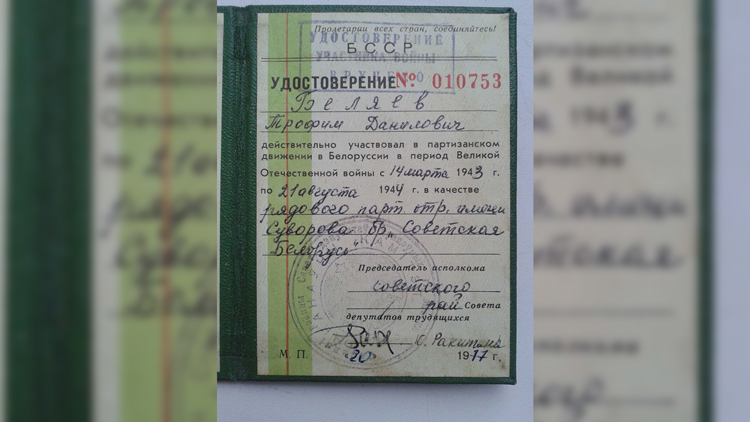 Пролетарии всех стран, соединяйтесь!
БССР
УДОСТОВЕРЕНИЕ
УЧАСТНИКА ВОЙНЫ
ВРУЧЕНО
УДОСТОВЕРЕНИЕ № 010753
Беляев
Трофим Данилович
действительно участвовал в партизанском
движении в Белоруссии в период Великой
Отечественной войны с 14 марта 1943 г.
по 21 августа 1944 г. в качестве
рядового парт. отр. имени
Суворова бр. "Советская
Беларусь"
Председатель исполкома
Советского
рай Совета
депутатов трудящихся
М. П. "20" 1977 г.